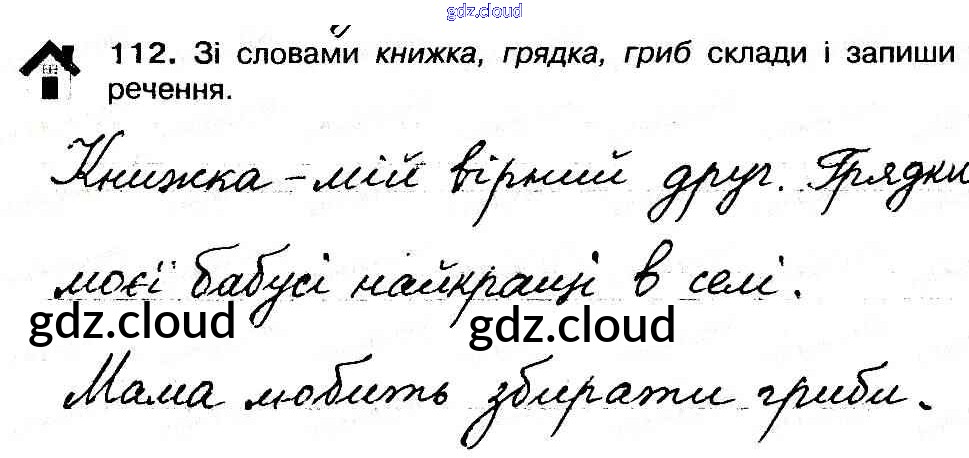 gdz.cloud
112. Зі словами книжка, грядка, гриб склади і запиши
речення.
Книжка – мій вірний друг. Грядки
моєї бабусі найкращі в селі.
gdz.cloud gdz.cloud
Мама любить збирати гриби.